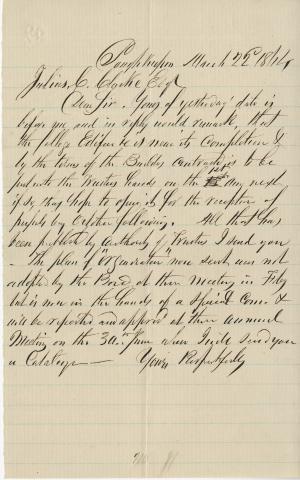 Poughkeepsie March 22d 1864
Julius C. Clarke Esqr
Dear Sir. Yours of yesterday's date is
before me, and in reply would remark, that
the College Edifice is near its completion &
by the terms of the Builders contract is to be
put into the Trustees hands on the 1st Aug next,
if so they hope to open it for the reception of
pupils by October following. All that has
been published by authority of Trustees I send you
The plan of "Organization" now sent, was not
adopted by the Board at their meeting in Feby
but is now in the hands of a Special Come &
will be reported and approvd at their annual
Meeting on the 30th June when I will send you
a Catalogue — Yours Respectfully